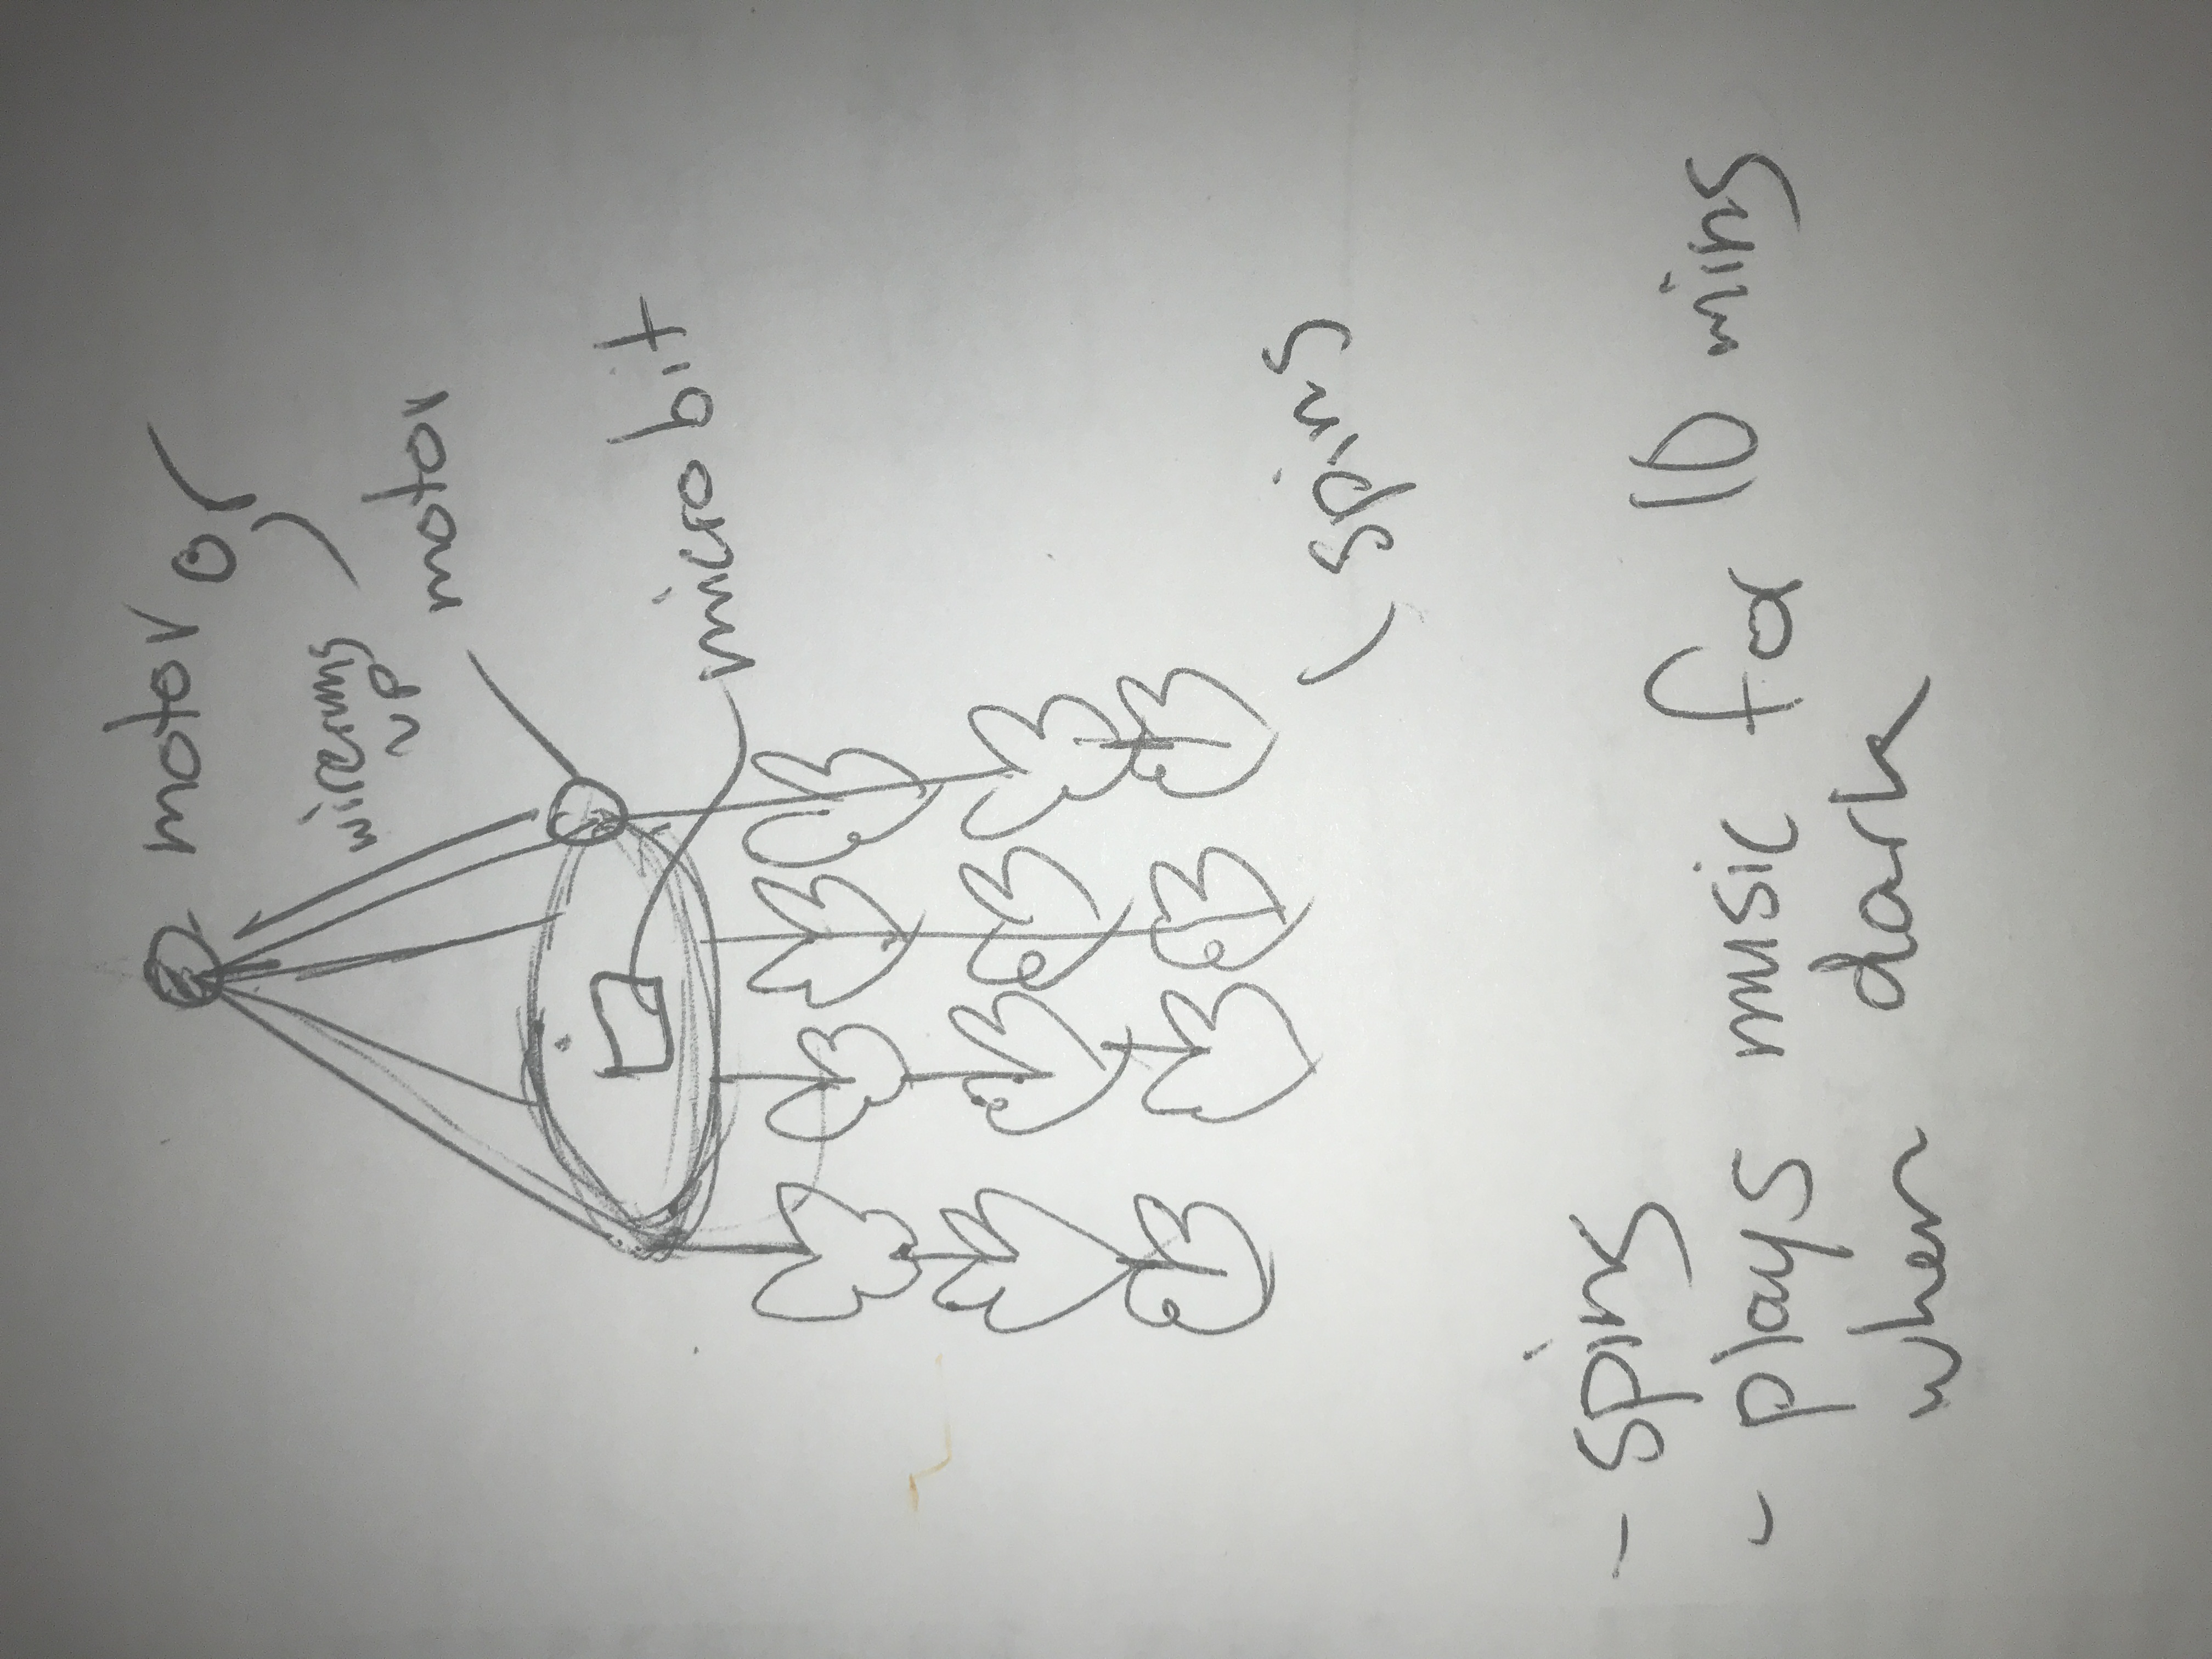 motor or
wireruns
up
motor
microbit
spins
- spins
- plays music for 10 mins
when dark